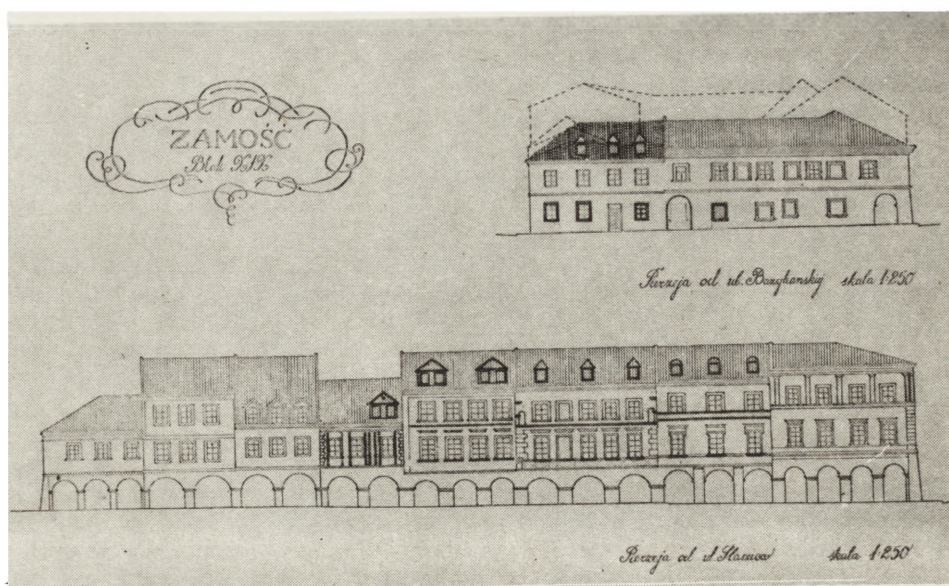 ZAMOŚĆ
Blok XIX
Pierzeja od ul. Bazyliańskiej skala 1:250
Pierzeja od ul. Staszica skala 1:250